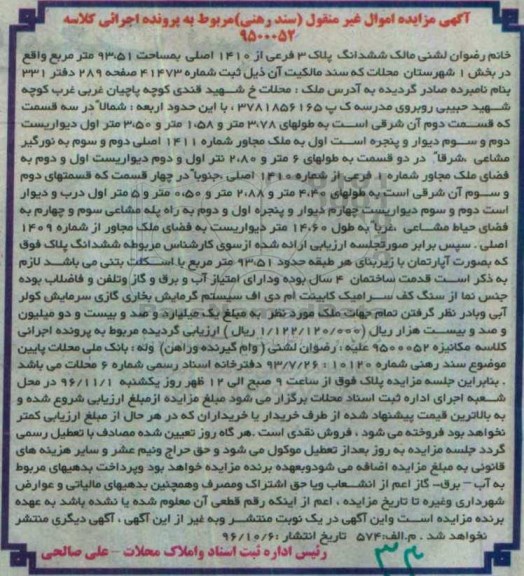 آگهی مزایده اموال غیر منقول (سند رهنی)مربوط به پرونده اجرائی کلاسه
۹۵۰۰۰۵۲
خانم رضوان لشنی مالک ششدانگ پلاک ۳ فرعی از ۱۴۱۰ اصلی بمساحت ۹۳،۵۱ متر مربع واقع
در بخش ۱ شهرستان محلات که سند مالکیت آن ذیل ثبت شماره ۴۱۴۷۳ صفحه ۲۸۹ دفتر ۳۳۱
بنام نامبرده صادر گردیده به آدرس ملک : محلات خ شهید قندی کوچه پاچیان غربی غرب کوچه
شهید حبیبی روبروی مدرسه ک پ ۳۷۸۱۸۵۶۱۶۵ ، با این حدود اربعه : شمالاً در سه قسمت
که قسمت دوم آن شرقی است به طولهای ۳،۷۸ متر و ۱،۵۸ متر و ۳،۵۰ متر اول دیواریست
دوم و سوم دیوار و پنجره است اول به ملک مجاور شماره ۱۴۱۱ اصلی دوم و سوم به نورگیر
مشاعی ،شرقاً در دو قسمت به طولهای ۶ متر و ۲،۸۰ نتر اول و دوم دیواریست اول و دوم به
فضای ملک مجاور شماره ۱ فرعی از شماره ۱۴۱۰ اصلی ،جنوباً در چهار قسمت که قسمتهای دوم
و سوم آن شرقی است به طولهای ۴،۴۰ متر و ۲،۸۸ متر و ۰،۵۰ متر و ۵ متر اول درب و دیوار
است دوم و سوم دیواریست چهارم دیوار و پنجره اول و دوم به راه پله مشاعی سوم و چهارم به
فضای حیاط مشاعی ،غرباً به طول ۱۴،۶۰ متر دیواریست به فضای ملک مجاور از شماره ۱۴۰۹
اصلی . سپس برابر صورتجلسه ارزیابی ارائه شده ازسوی کارشناس مربوطه ششدانگ پلاک فوق
که بصورت آپارتمان با زیربنای هر طبقه حدود ۹۳،۵۱ متر مربع با اسکلت بتنی می باشد لازم
به ذکر است قدمت ساختمان ۴ سال بوده ودارای امتیاز آب و برق و گاز وتلفن و فاضلاب بوده
جنس نما از سنگ کف سرامیک کابینت ام دی اف سیستم گرمایش بخاری گازی سرمایش کولر
آبی وبادر نظر گرفتن تمام جهات ملک مورد نظر به مبلغ یک میلیارد و صد و بیست و دو میلیون
و صد و بیست هزار ریال (۱/۱۲۲/۱۲۰/۰۰۰ ریال ) ارزیابی گردیده مربوط به پرونده اجرائی
کلاسه مکانیزه ۹۵۰۰۰۵۲ علیه : رضوان لشنی ( وام گیرنده وراهن) وله : بانک ملی محلات پایین
موضوع سند رهنی شماره ۱۰۱۲۰ : ۹۳/۷/۲۶ دفترخانه اسناد رسمی شماره ۶ محلات می باشد
. بنابراین جلسه مزایده پلاک فوق از ساعت ۹ صبح الی ۱۲ ظهر روز یکشنبه ۹۶/۱۱/۱ در محل
شعبه اجرای اداره ثبت اسناد محلات برگزار می شود مبلغ مزایده ازمبلغ ارزیابی شروع شده و
به بالاترین قیمت پیشنهاد شده از طرف خریدار یا خریداران که در هر حال از مبلغ ارزیابی کمتر
نخواهد بود فروخته می شود ، فروش نقدی است .هر گاه روز تعیین شده مصادف با تعطیل رسمی
گردد جلسه مزایده به روز بعداز تعطیل موکول می شود و حق حراج ونیم عشر و سایر هزینه های
قانونی به مبلغ مزایده اضافه می شودوبعهده برنده مزایده خواهد بود وپرداخت بدهیهای مربوط
به آب – برق- گاز اعم از انشعاب ویا حق اشتراک ومصرف وهمچنین بدهیهای مالیاتی و عوارض
شهرداری وغیره تا تاریخ مزایده ، اعم از اینکه رقم قطعی آن معلوم شده یا نشده باشد به عهده
برنده مزایده است واین آگهی در یک نوبت منتشر وبه غیر از این آگهی ، آگهی دیگری منتشر
نخواهد شد . م.الف:۵۷۴ تاریخ انتشار :۹۶/۱۰/۶
رئیس اداره ثبت اسناد واملاک محلات – علی صالحی